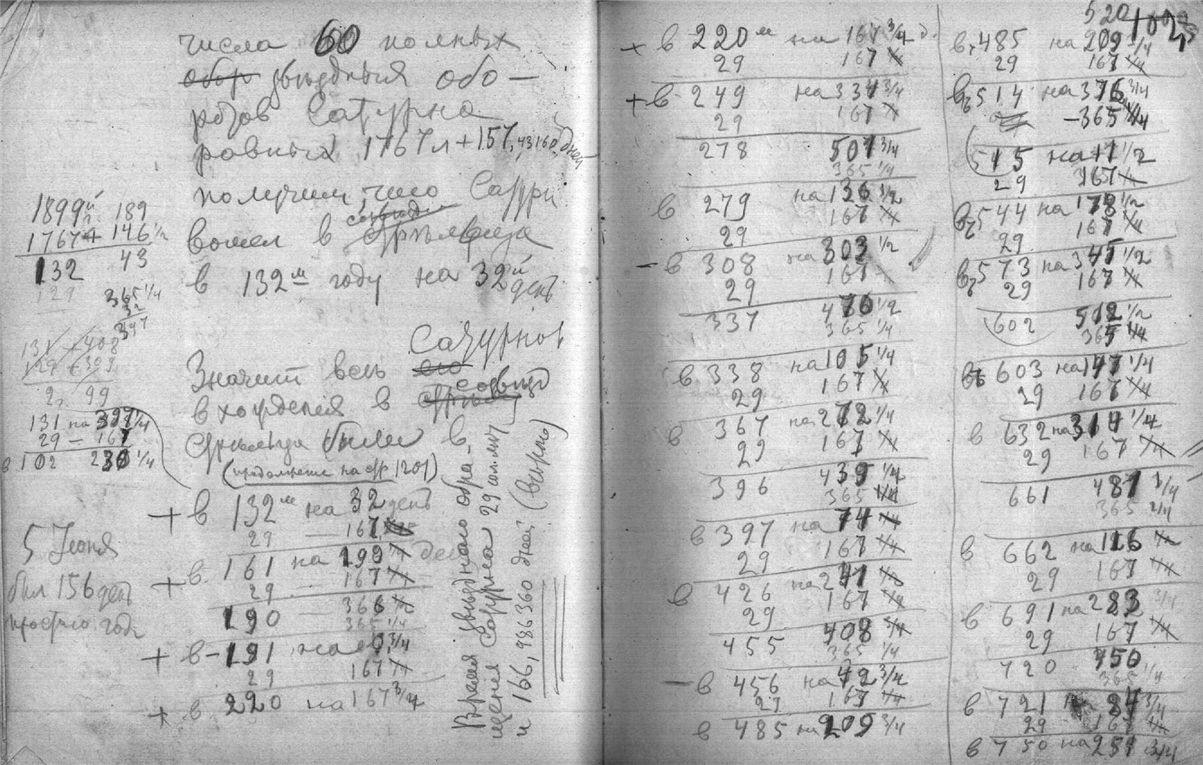 числа 60 полных
обор звѣздныя обо-
ротов Сатурна
ровных 1767л+157,43160 дней
получим, что Сатурн
вошел в созвѣздие Стрѣльца
в 132м году на 32й день
1899й 189
1767л 146½
132 43
365 1/4
32
397
131 408
29 399
2. 99
131 на 397 1/4
29 — 167
в 102 230 1/4
Значит весь его Сатурнов
входился в созвѣзд
Стрѣльца были в
(продолжение на стр 1201)
+ в 132м на 32 день
29 — 167
+ в 161 на 199 день
29 167
190 366
365 1/4
+ в 191 на 0 3/4
29 167
+ в 220 на 167 3/4
5 Июня
был 156 день
простого года
Время звѣзднаго обра-
щения Сатурна 29 лѣт
и 166,986360 дней (вѣрно)
+ в 220м на 167 3/4 д.
29 167
+ в 249 на 334 3/4
29 167
278 501 3/4
365 1/4
в 279 на 136 1/2
29 167
- в 308 на 303 1/2
29 167
337 470 1/2
365 1/4
в 338 на 105 1/4
29 167
в 367 на 272 1/4
29 167
396 439 1/4
365 1/4
в 397 на 74
29 167
в 426 на 241
29 167
455 408
365 1/4
- в 456 на 42 3/4
29 167
в 485 на 209 3/4
520
в 485 на 209 3/4
29 167
в 514 на 376 3/4
-365 1/4
515 на 11 1/2
29 167
в 544 на 178 1/2
29 167
в 573 на 345 1/2
29 167
602 512 1/2
365 1/4
в 603 на 147 1/4
29 167
в 632 на 314 1/4
29 167
661 481 1/4
365 1/4
в 662 на 116
29 167
в 691 на 283
29 167
720 450
365 1/4
в 721 на 84 3/4
29 167
в 750 на 251 3/4